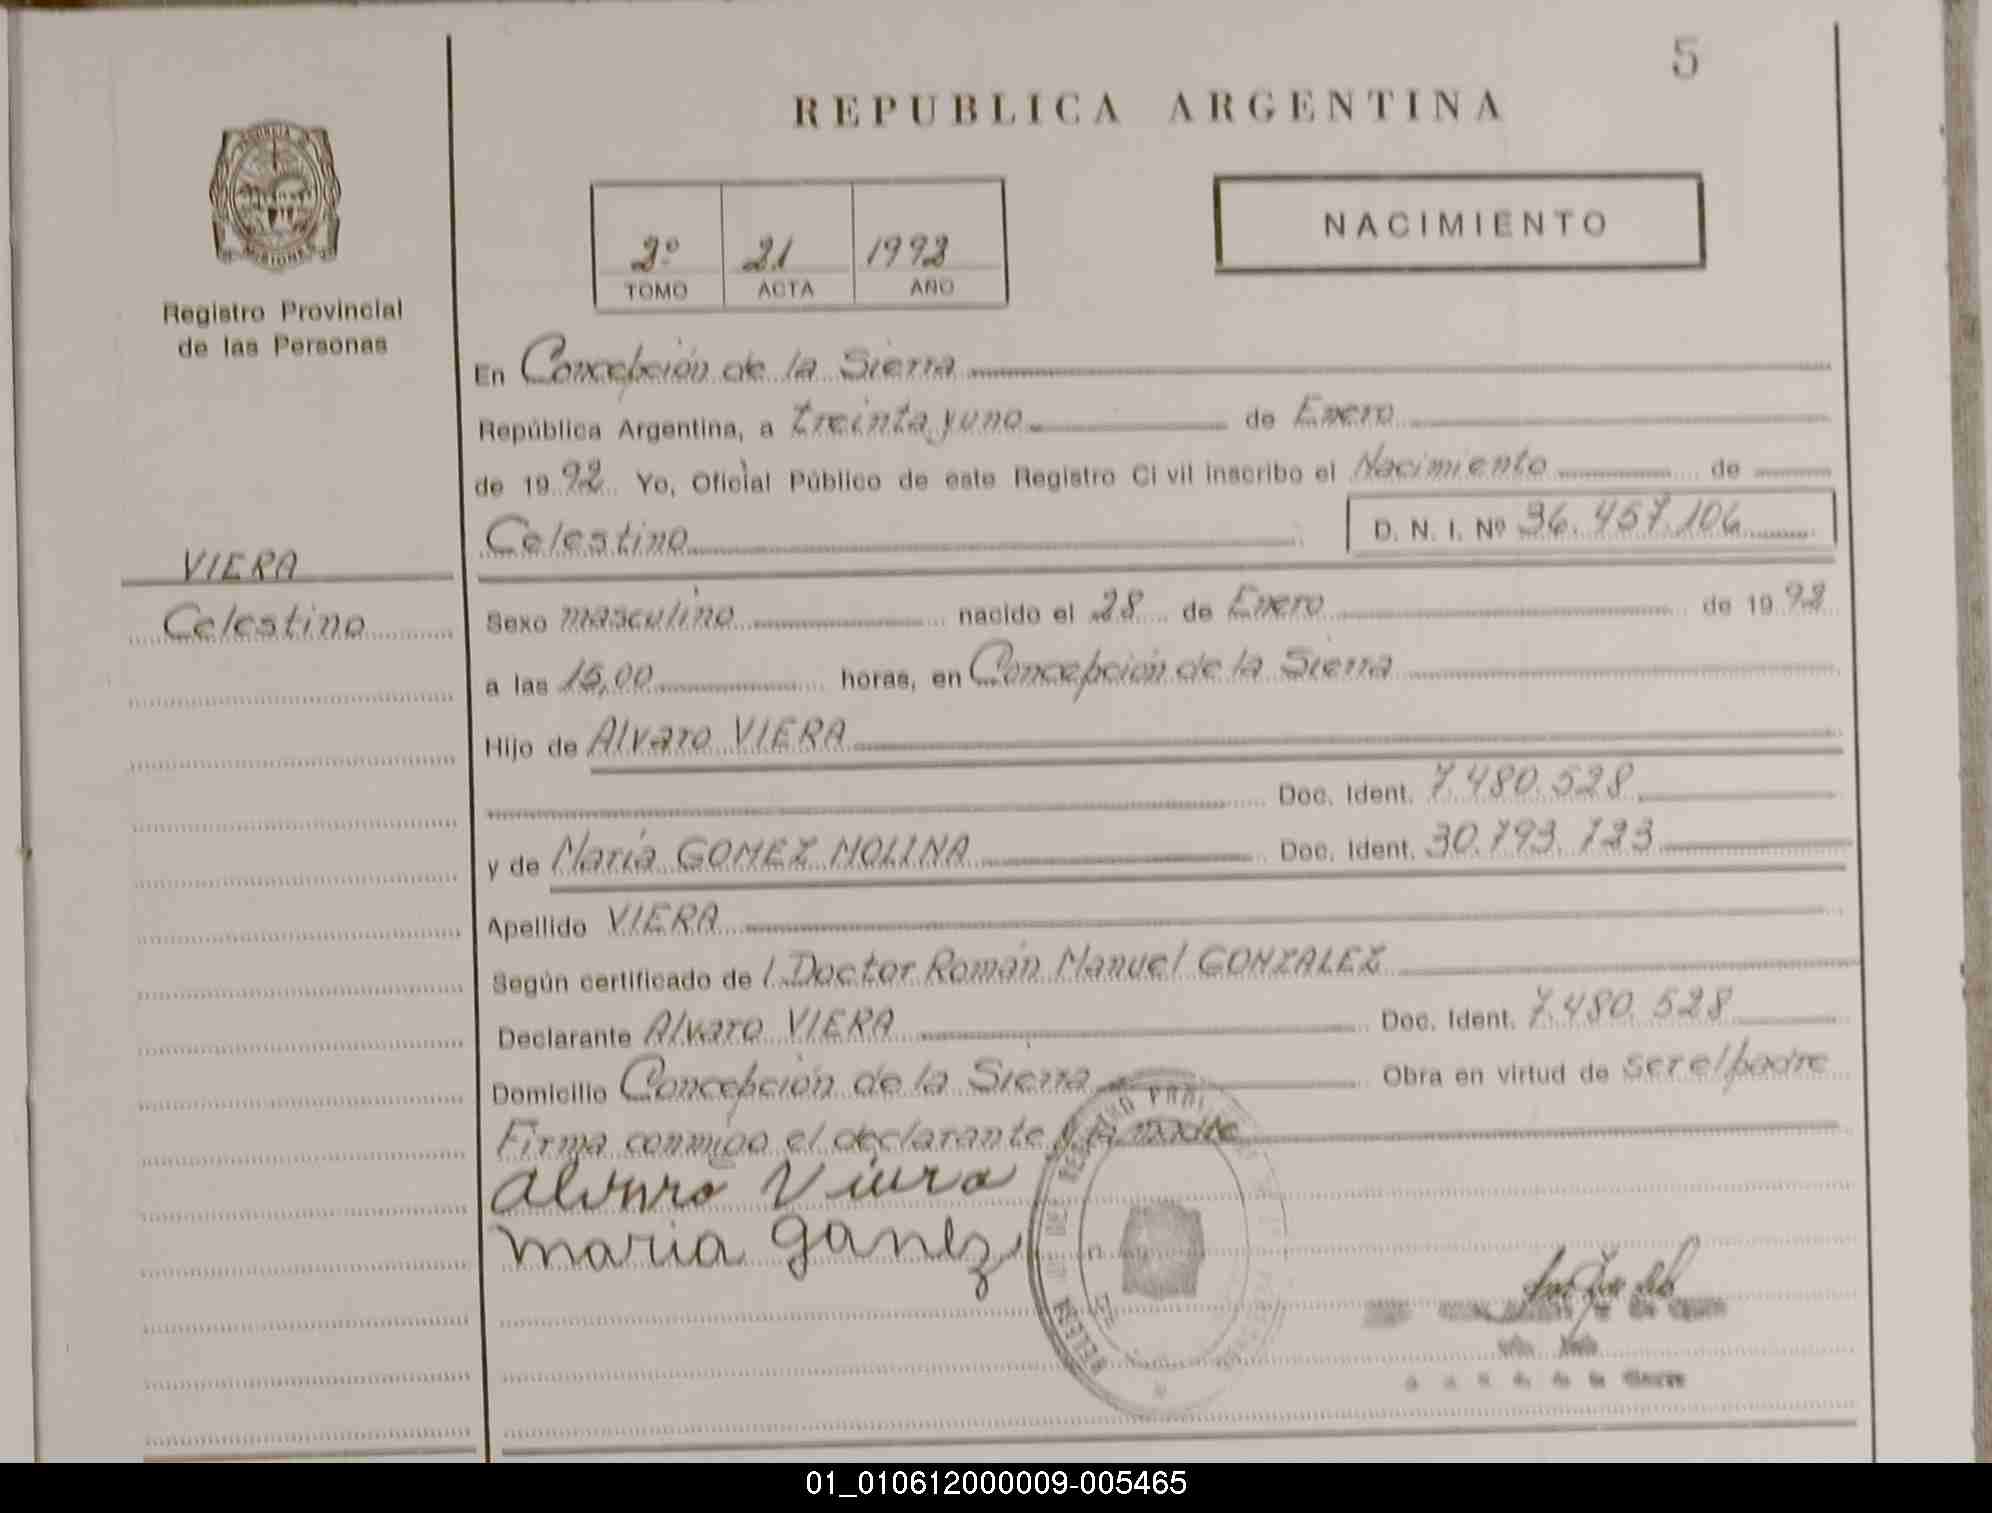 5
REPUBLICA ARGENTINA
MISIONES
Registro Provincial
de las Personas
2º 21 1992
TOMO ACTA AÑO
NACIMIENTO
En Concepción de la Sierra
República Argentina, a treinta y uno de Enero
de 1992 Yo, Oficial Público de este Registro Civil inscribo el Nacimiento de
Celestino D. N. I. Nº 36.457.106
VIERA
Celestino
Sexo masculino nacido el 28 de Enero de 1992
a las 15,00 horas, en Concepción de la Sierra
Hijo de Alvaro VIERA
Doc. Ident. 7.480.528
y de María GOMEZ MOLINA Doc. Ident. 30.793.723
Apellido VIERA
Según certificado de l Doctor Román Manuel GONZALEZ
Declarante Alvaro VIERA Doc. Ident. 7.480.528
Domicilio Concepción de la Sierra Obra en virtud de ser el padre
Firma conmigo el declarante y la madre
Alvaro Viera
maria gomez
01_010612000009-005465